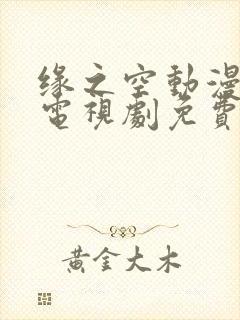 緣之空動漫
電視劇免費
黃金大木